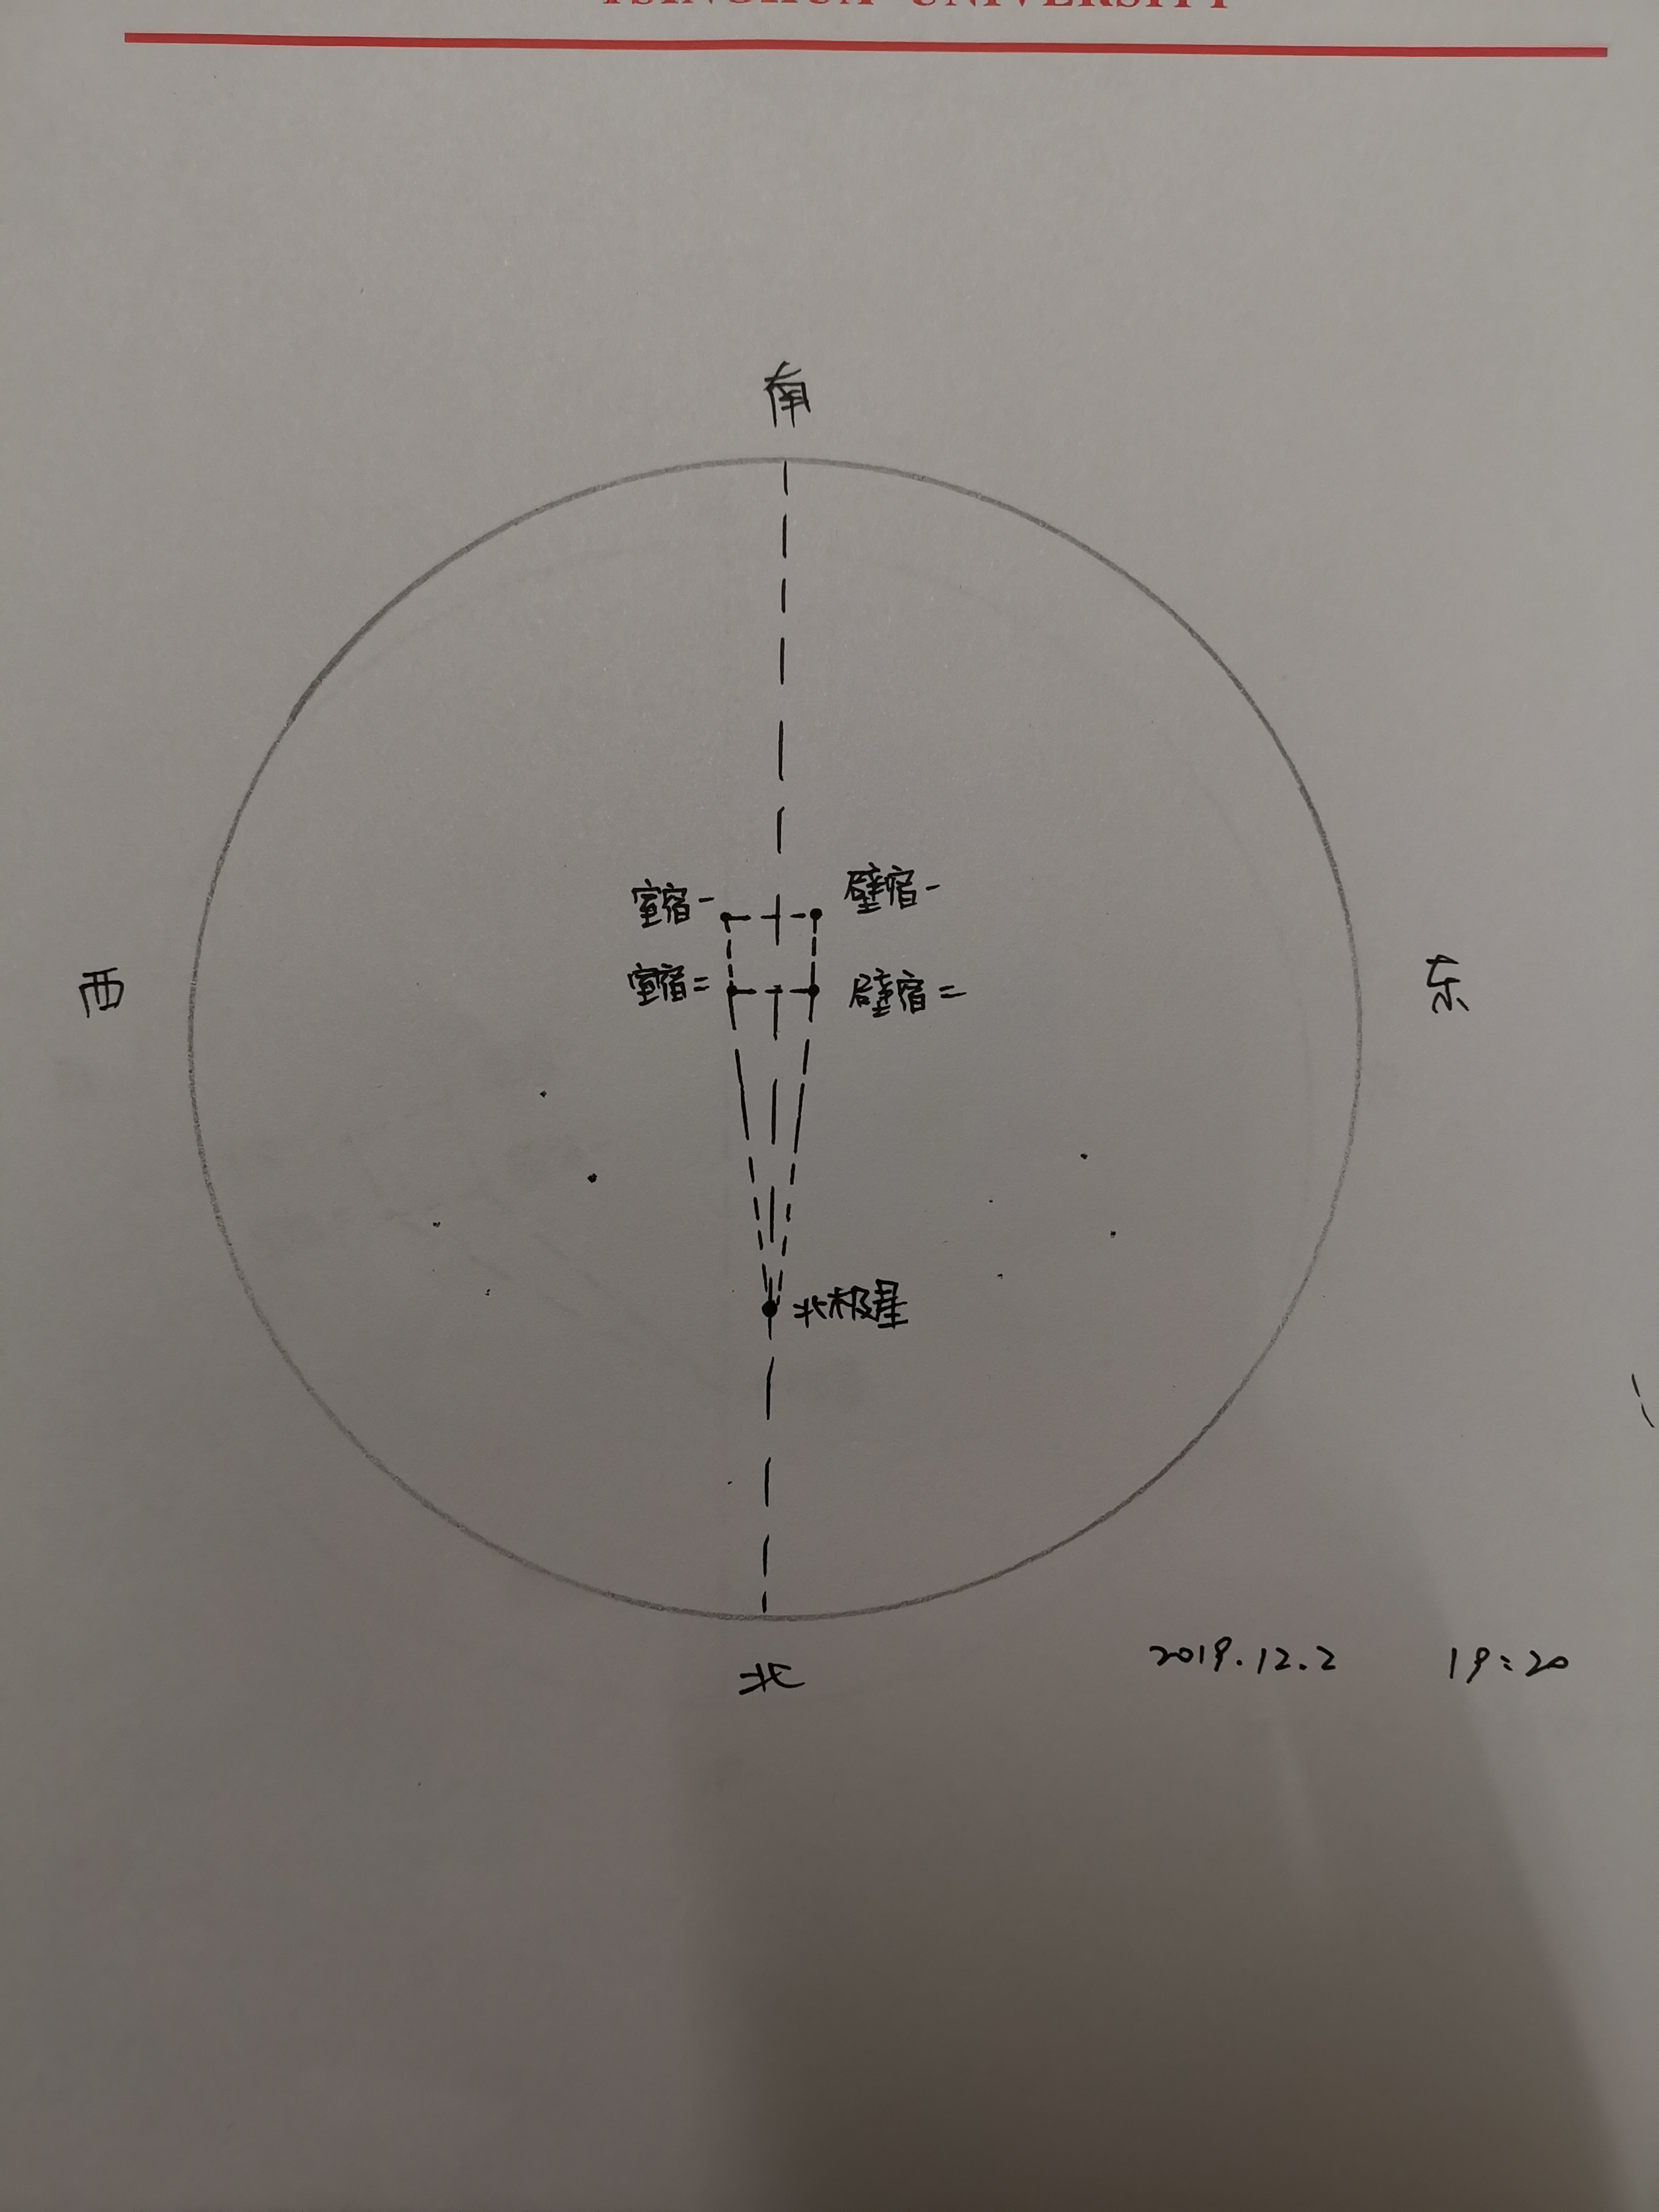 TSINGHUA UNIVERSITY
南
室宿一 壁宿一
西 室宿二 壁宿二 东
北极星
北
2019.12.2 19:20